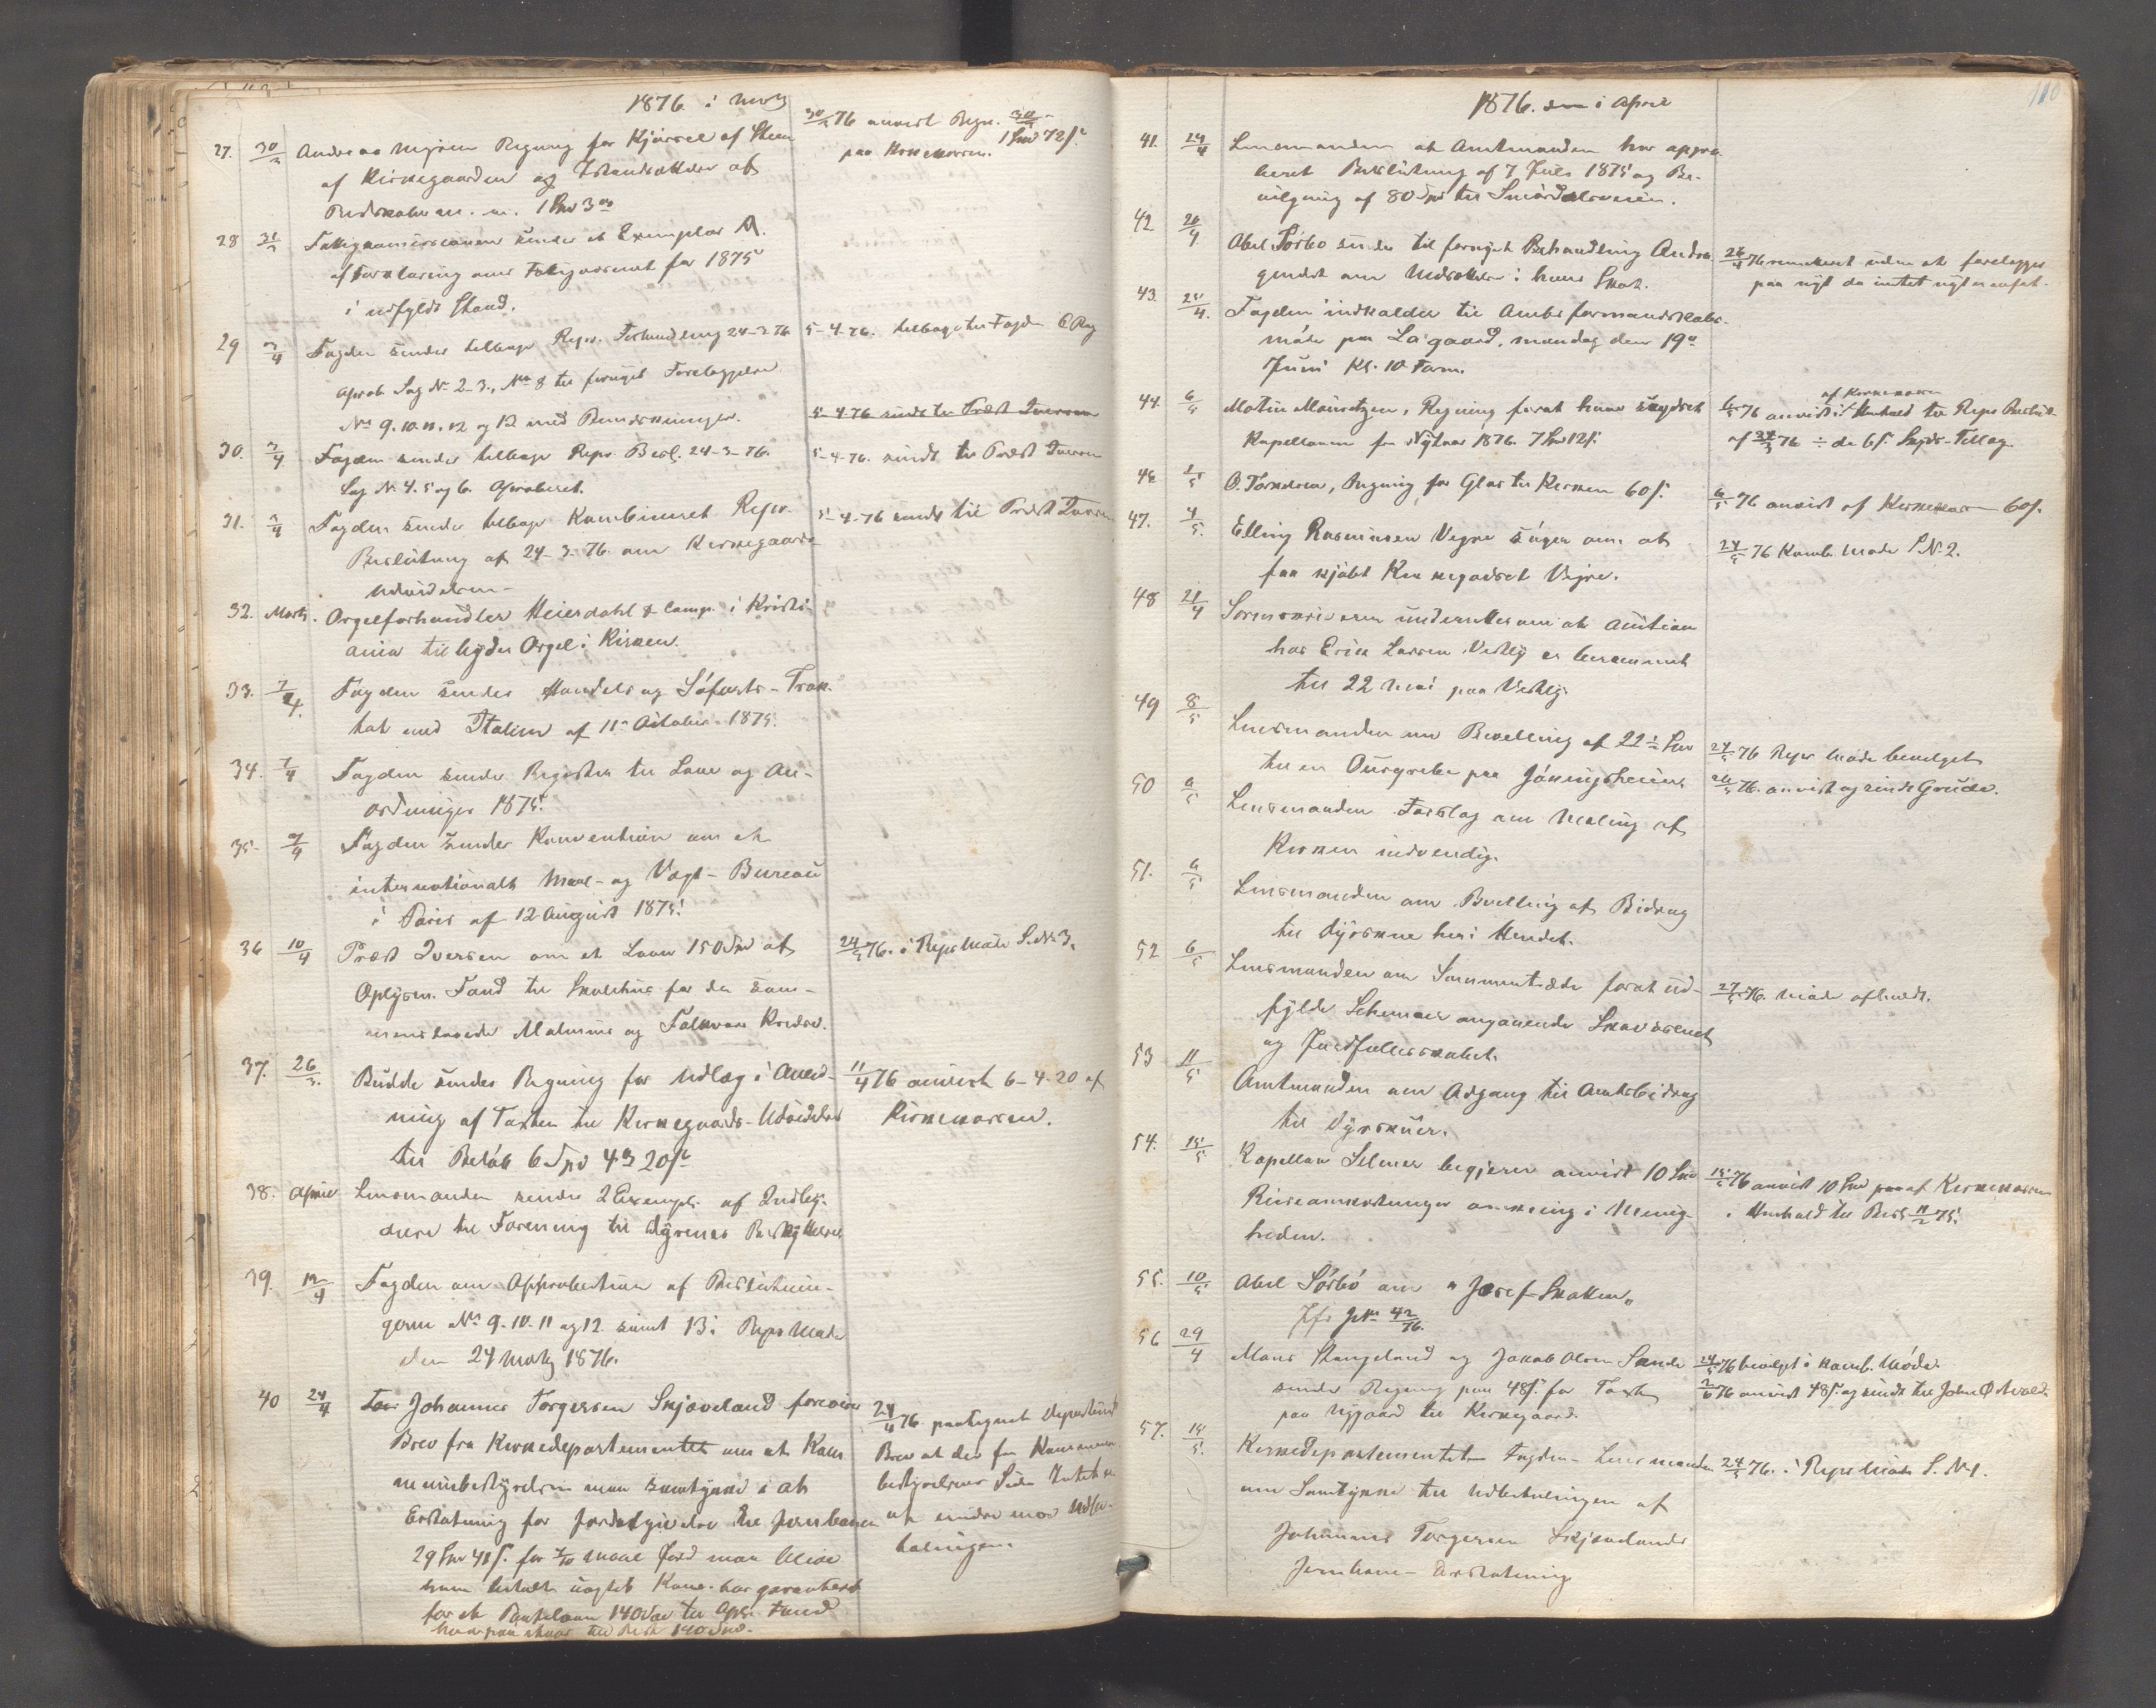 1876. i Marts
27. 30/3 Andreas Mjöen Regning for Kjörsel af Steen
af Kirkegaarden og Istandsættelse af
Redskaber m. m. 1 Spd 3
30/3 76 anvist Regn.
paa Kirkekassen. 1 Spd 72 s.
28 31/3 Fattigkommissionen sender et Exemplar
af Forklaring om Fattigvæsenet for 1875
i udfyldt Stand.
29 3/4 Fogden sender tilbage Repr. Forhandling 24-3 76
Aprob. Sag No 2-3., No 8 til fornyet Forelæggelse
No 9. 10. 11. 12 og 13 med Bemærkninger.
5-4-76. tilbage til Fogden
30. 3/4 Fogden sender tilbage Repr. Besl. 24-3-76.
Sag No 4. 5 og 6. Aproberet.
5-4-76 sendt til Præst Iversen
5-4-76. sendt til Præst Iversen
31. 3/4 Fogden sender tilbage Kombineret Repr.
Beslutning af 24-3-76. om Kirkegaards-
udvidelsen-
5-4-76 sendt til Præst Iversen
32. Marts. Orgelforhandler Heierdahl & Comp. i Kristi-
ania tilbyder Orgel i Kirken.
33. 7/4. Fogden sender Handels og Söfarts-Trak-
tat med Italien af 11te October 1875.
34. 7/4 Fogden sender Register til Love og An-
ordninger 1875.
35- 7/4 Fogden sender Konvention om et
internationalt Maal- og Vægt-Bureau
i Paris af 12 August 1875.
36 10/4 Præst Iversen om et Laan 150 Spd af
Oplysn. Fond til Skolehus for de sam-
menslaaede Malmins og Kredse.
24/5 76. i Repr Möde S. No 3.
37. 26/3. Budde sender Regning for Udlæg i Anled-
ning af Taxten til Kirkegaards-Udvidelse
til Belöb 6 Spd 4 20 s
11/4 76 anvist 6-4-20 af
Kirkekassen.
38. April Lensmanden sender 2 Exempl. af Indby-
delse til Forening til Dyrenes Beskyttelse
39. 12/4 Fogden om Approbation af Beslutnin-
gerne No 9. 10. 11 og 12. samt 13 i Repr Möde
den 24 Marts 1876.
40 24/4 Johannes Torgersen Skjæveland foreviser
Brev fra Kirkedepartementet om at Kom
munebestyrelsen maa samtykke i at
Erstatning for Jordafgivelse til Jernbanen
29 Spd 48 s. for 7/10 Maal Jord maa blive
ham betalt uagtet Kom. har garanteret
for et Pantelaan 140 Spd til Opl. Fond
24/4 76 paategnet Departements
Brev at der fra Kommune
bestyrelsens Side Intet er
at erindre mod Udbe-
talingen.
110
1876. i April
41. 24/4 Lensmanden at Amtmanden har appro-
beret Beslutning af 7 Juli 1875 og Be-
vilgning af 80 Spd til Smördalsveien.
42 26/4 Abel Sörbö sender til fornyet Behandling Andra
gendet om Nedsættelse i hans Skat.
26/4 76 remitteret uden at forelægges
paa nyt da intet nyt er anført.
43. 25/4. Fogden indkalder til Amtsformandskabs-
möde paa Lagaard, mandag den 19de
Juni Kl. 10 Form.
44. 6/5 Mauritzen, Regning forat have skydset
Kapellanen fra Nytaar 1876. 7 Spd 12 s.
6/5 76 anvist i Henhold til Repr Beslut.
af Kirkekassen
af 24/3 76 ÷ de 6 s. Skyds-Tillæg.
46 1/5 O. Torkelsen, Regning for Glas til Kirken 60 s.
6/5 76 anvist af Kirkekassen 60 s.
47. 4/5. Elling Rasmussen Vegre söger om at
faa kjöbt Kirkegodset Vegre.
24/5 76 Komb. Möde S. No 2.
48 21/4 Sorenskriveren underretter om at Auktion
hos Erik Larsen Vestly er berammet
til 22 Mai paa Vestly.
49 8/5 Lensmanden om Bevilling af 22 1/2 Spd
til en paa Jönningsheien.
24/5 76 Repr Möde bevilget
24/5 76. anvist og sendt Grude.
50 6/5 Lensmanden Forslag om Maling af
Kirken indvendig.
51. 6/5 Lensmanden om Bevilling af Bidrag
til Dyrskue her i Herredet.
52 6/5 Lensmanden om Sammentræde forat ud-
fylde Schemaer angaaende Skovvæsenet
og Jordfællesskabet.
27/5 76. Möde afholdt.
53 11/5 Amtmanden om Adgang til Amtsbidrag
til Dyrskuer.
54. 15/5 Kapellan Selmer begjærer anvist 10 Spd
Reiseomkostninger omkring i Menig-
heden.
15/5 76 anvist 10 Spd af Kirkekassen
i Henhold til Besl. 11/2 75.
55. 10/5 Abel Sörbö om "Josef-Skatten"
Jfr J No 42/76.
56 29/4 Mons Stangeland og Jakob Olsen Sande
sender Regning paa 48 s. for Taxten
paa Nygaard til Kirkegaard.
24/5 76 bevilget i Komb. Möde.
2/6 76 anvist 48 s. og sendt til John Östvold.
57. 15/5. Kirkedepartementet- Fogden- Lensmanden
om Samtykke til Udbetalingen af
Johannes Torgersen Skjævelands
Jernbane-Erstatning
24/5 76. i Repr Möde S. No 1.